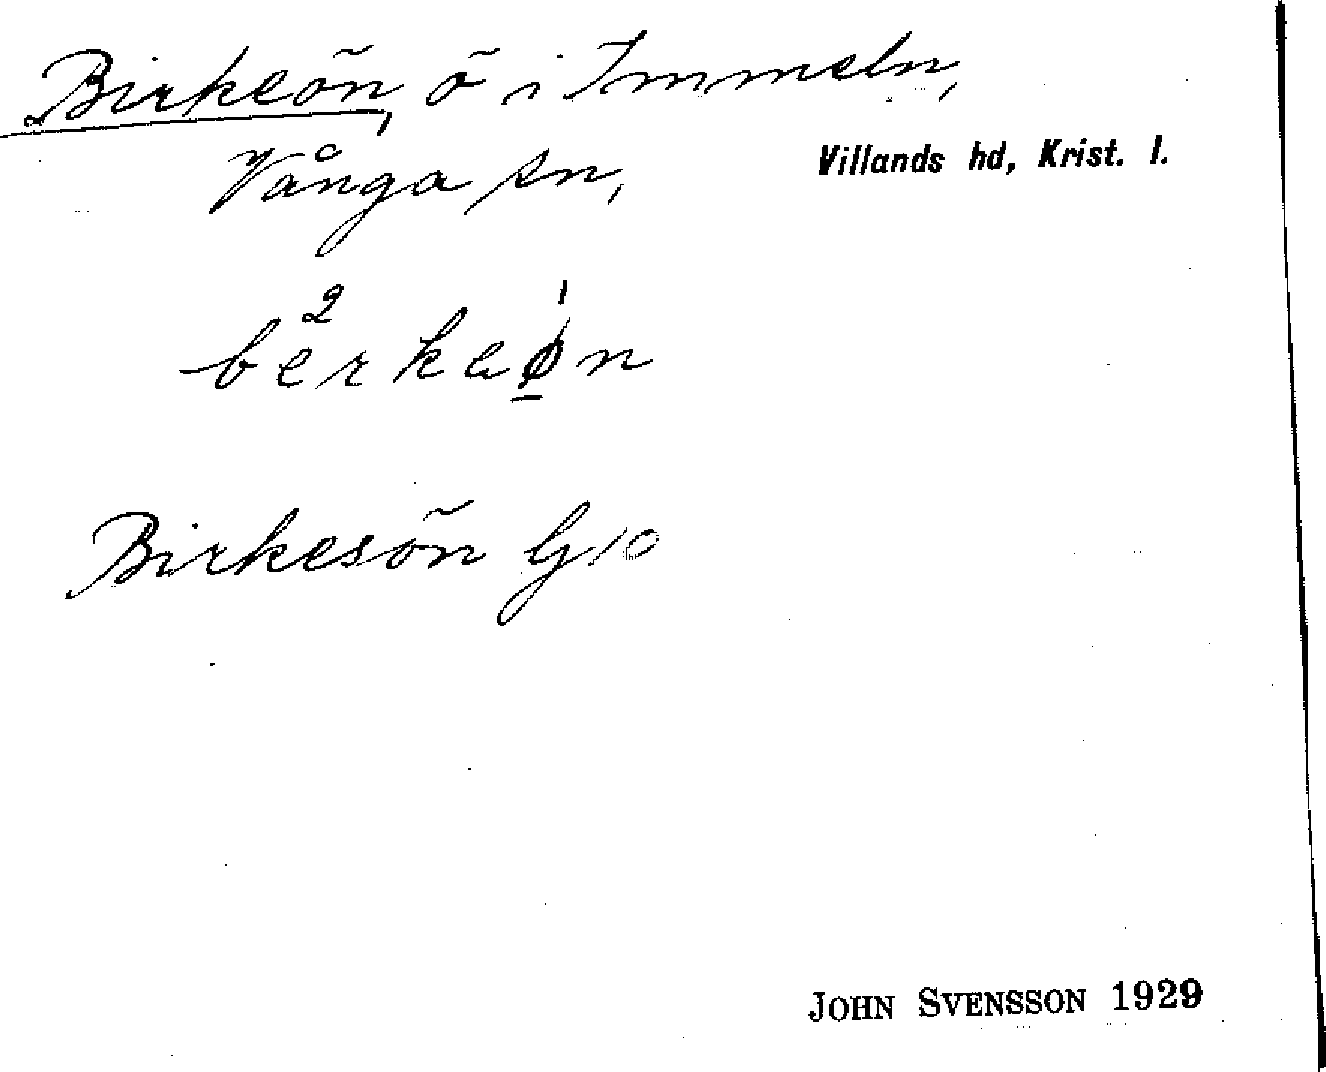 Birkeön, ö i Immeln,
Vånga sn,
Villands hd, Krist. l.
Birkesön G10
JOHN SVENSSON 1929